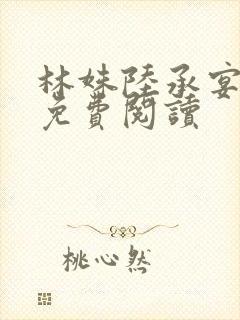 林姝陸承宴
免費閱讀
桃心然